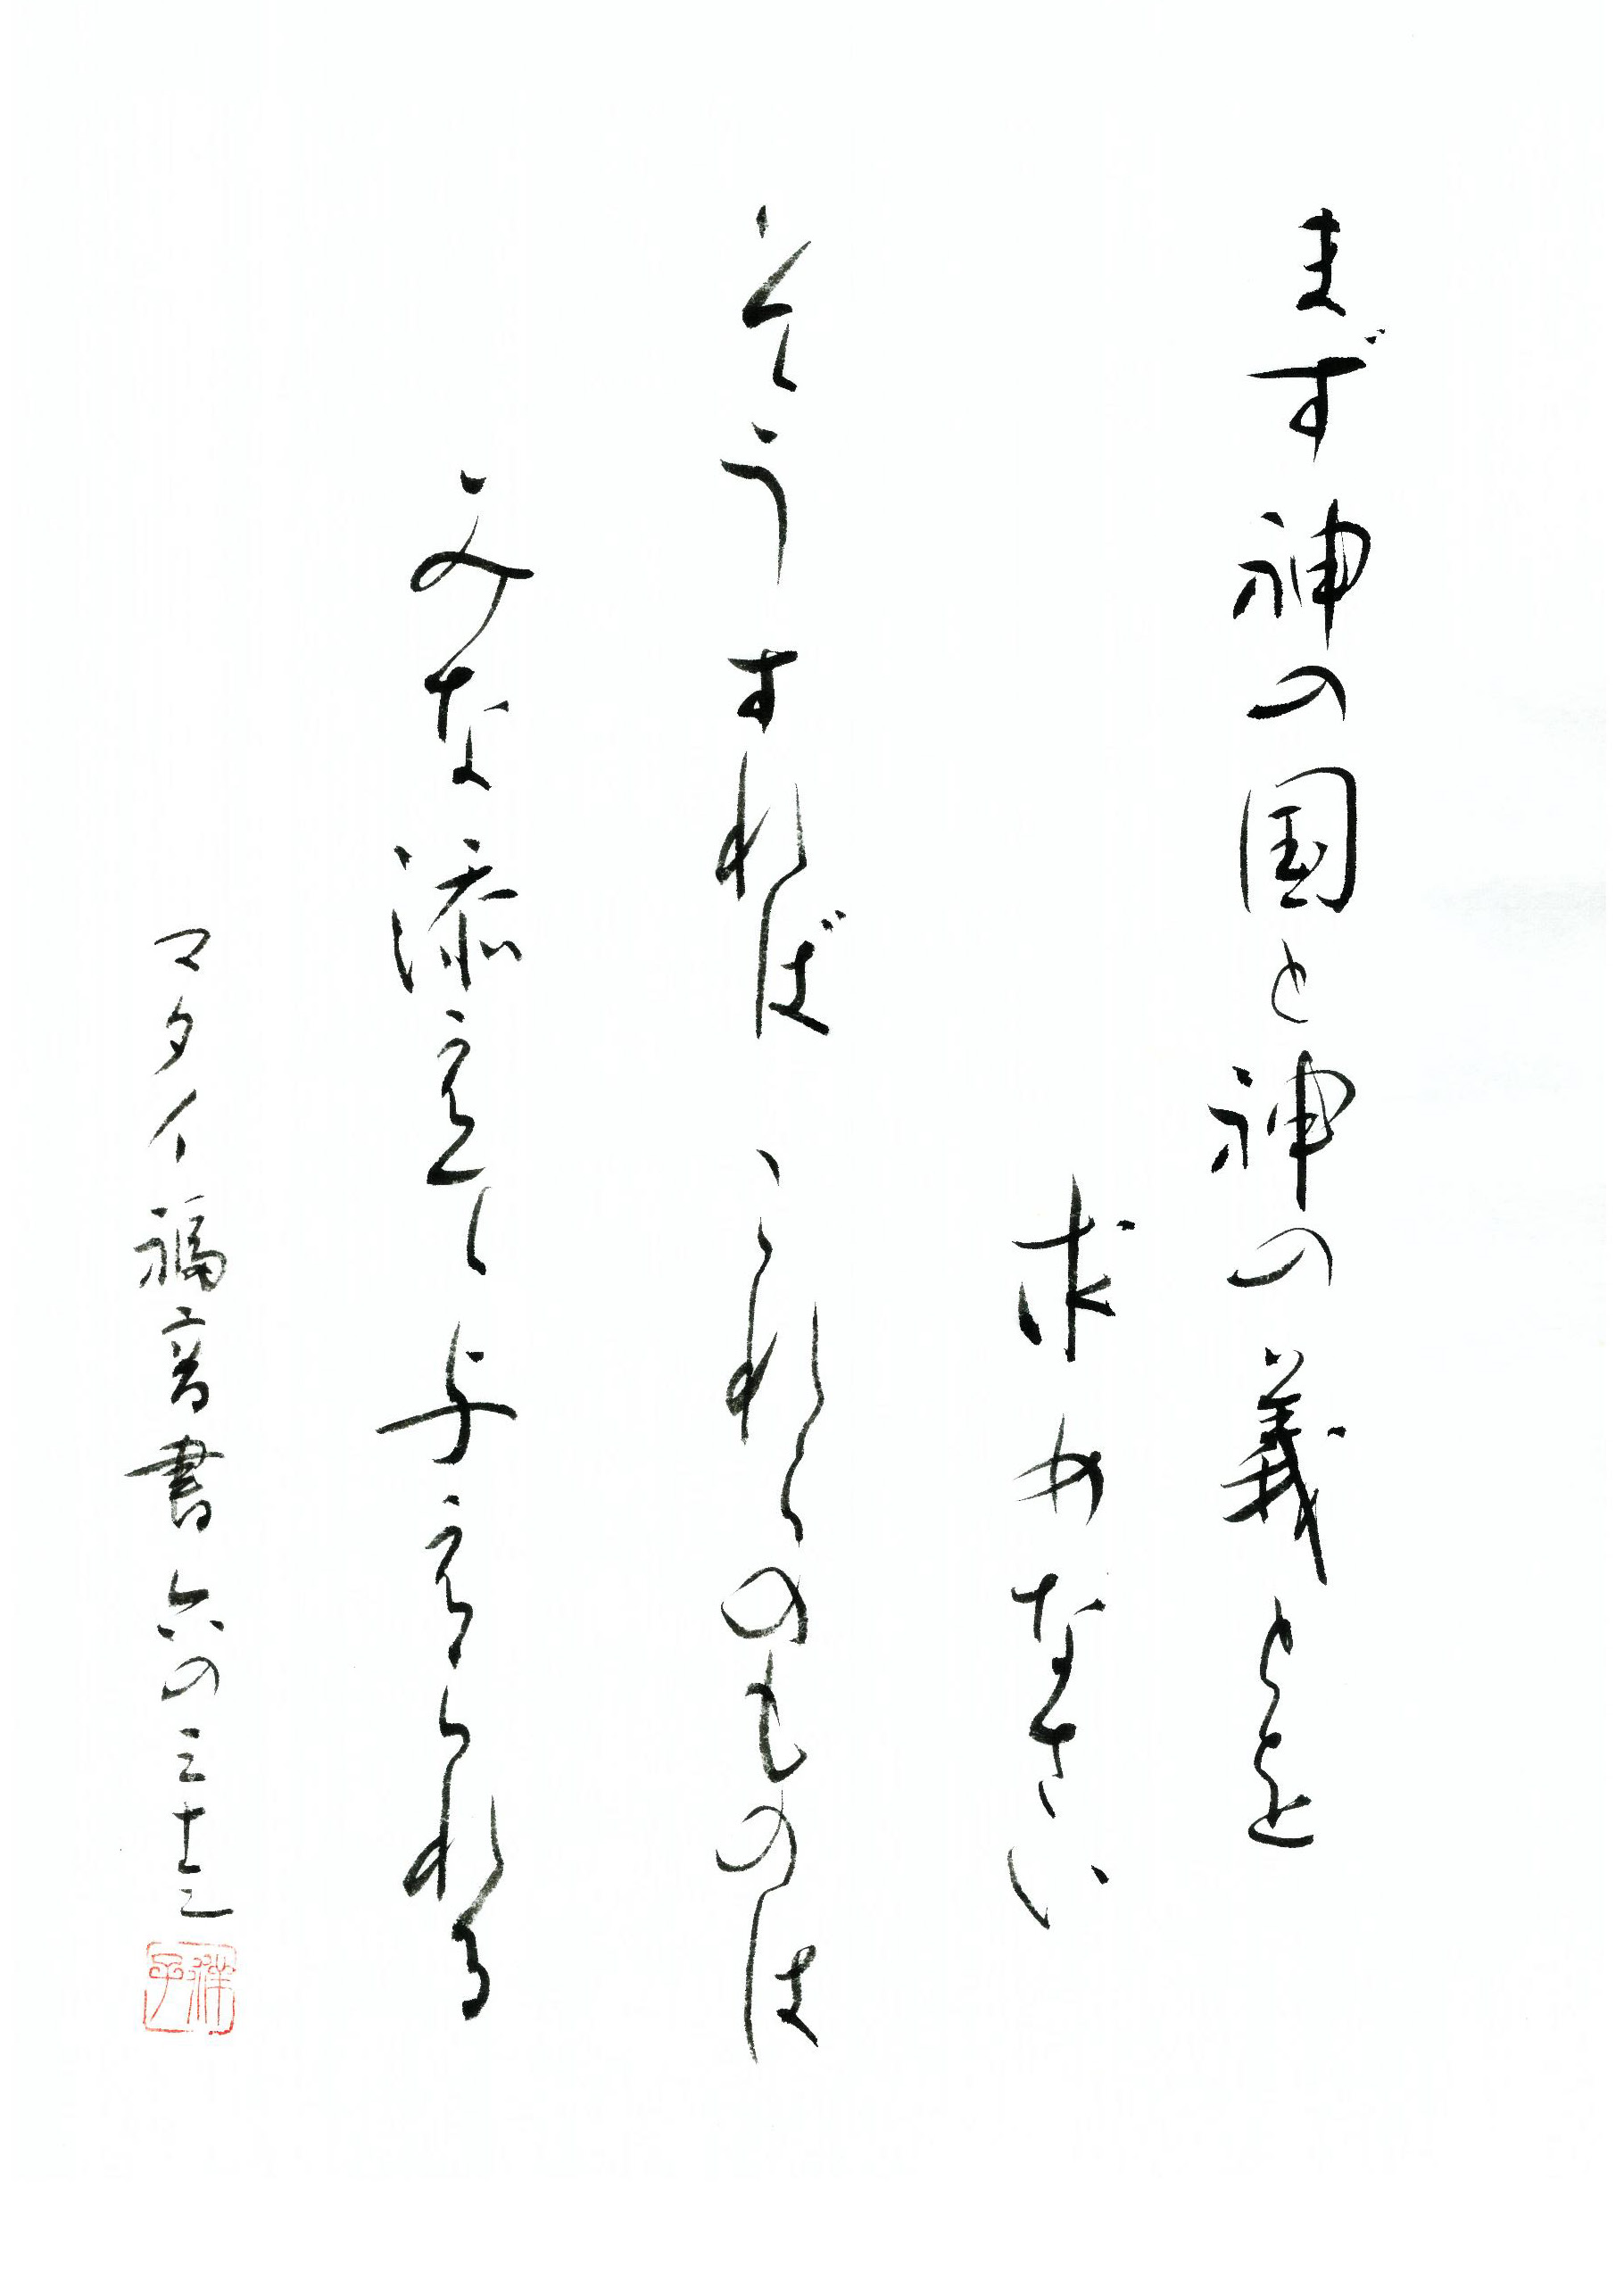 まず神の国と神の義とを
求めなさい
そうすればこれらのものは
みな添えて与えられる
マタイ福音書六の三十三